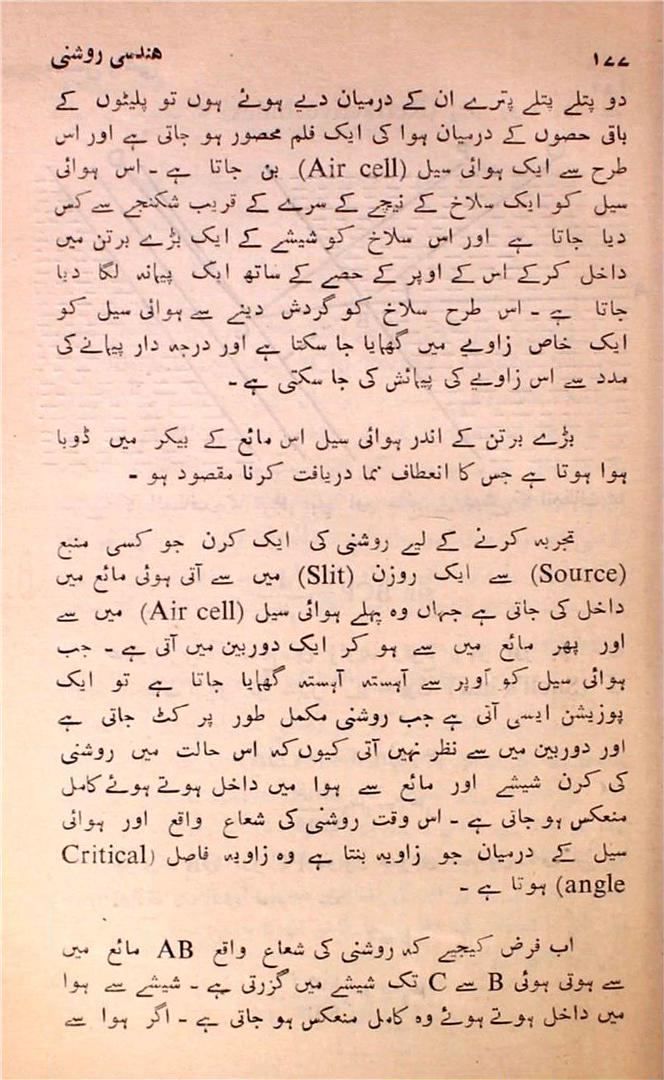 ۱۷۷
هندسی روشنی
دو پتلے پتلے پترے ان کے درمیان دیے ہوئے ہوں تو پلیٹوں کے
باقی حصوں کے درمیان ہوا کی ایک فلم محصور ہو جاتی ہے اور اس
طرح سے ایک ہوائی سیل (Air cell) بن جاتا ہے ۔ اس ہوائی
سیل کو ایک سلاخ کے نیچے کے سرے کے قریب شکنجے سے کس
دیا جاتا ہے اور اس سلاخ کو شیشے کے ایک بڑے برتن میں
داخل کرکے اس کے اوپر کے حصے کے ساتھ ایک پیمانہ لگا دیا
جاتا ہے ۔ اس طرح سلاخ کو گردش دینے سے ہوائی سیل کو
ایک خاص زاویے میں گھمایا جا سکتا ہے اور درجہ دار پیمانے کی
مدد سے اس زاویے کی پیمائش کی جا سکتی ہے ۔
بڑے برتن کے اندر ہوائی سیل اس مائع کے بیکر میں ڈوبا
ہوا ہوتا ہے جس کا انعطاف نما دریافت کرنا مقصود ہو ۔
تجربہ کرنے کے لیے روشنی کی ایک کرن جو کسی منبع
(Source) سے ایک روزن (Slit) میں سے آتی ہوئی مائع میں
داخل کی جاتی ہے جہاں وہ پہلے ہوائی سیل (Air cell) میں سے
اور پھر مائع میں سے ہو کر ایک دوربین میں آتی ہے ۔ جب
ہوائی سیل کو اوپر سے آہستہ آہستہ گھمایا جاتا ہے تو ایک
پوزیشن ایسی آتی ہے جب روشنی مکمل طور پر کٹ جاتی ہے
اور دوربین میں سے نظر نہیں آتی کیوں کہ اس حالت میں روشنی
کی کرن شیشے اور مائع سے ہوا میں داخل ہوتے ہوئے کامل
منعکس ہو جاتی ہے ۔ اس وقت روشنی کی شعاع واقع اور ہوائی
سیل کے درمیان جو زاویہ بنتا ہے وہ زاویہ فاصل (Critical
angle) ہوتا ہے ۔
اب فرض کیجیے کہ روشنی کی شعاع واقع AB مائع میں
سے ہوتی ہوئی B سے C تک شیشے میں گزرتی ہے ۔ شیشے سے ہوا
میں داخل ہوتے ہوئے وہ کامل منعکس ہو جاتی ہے ۔ اگر ہوا سے